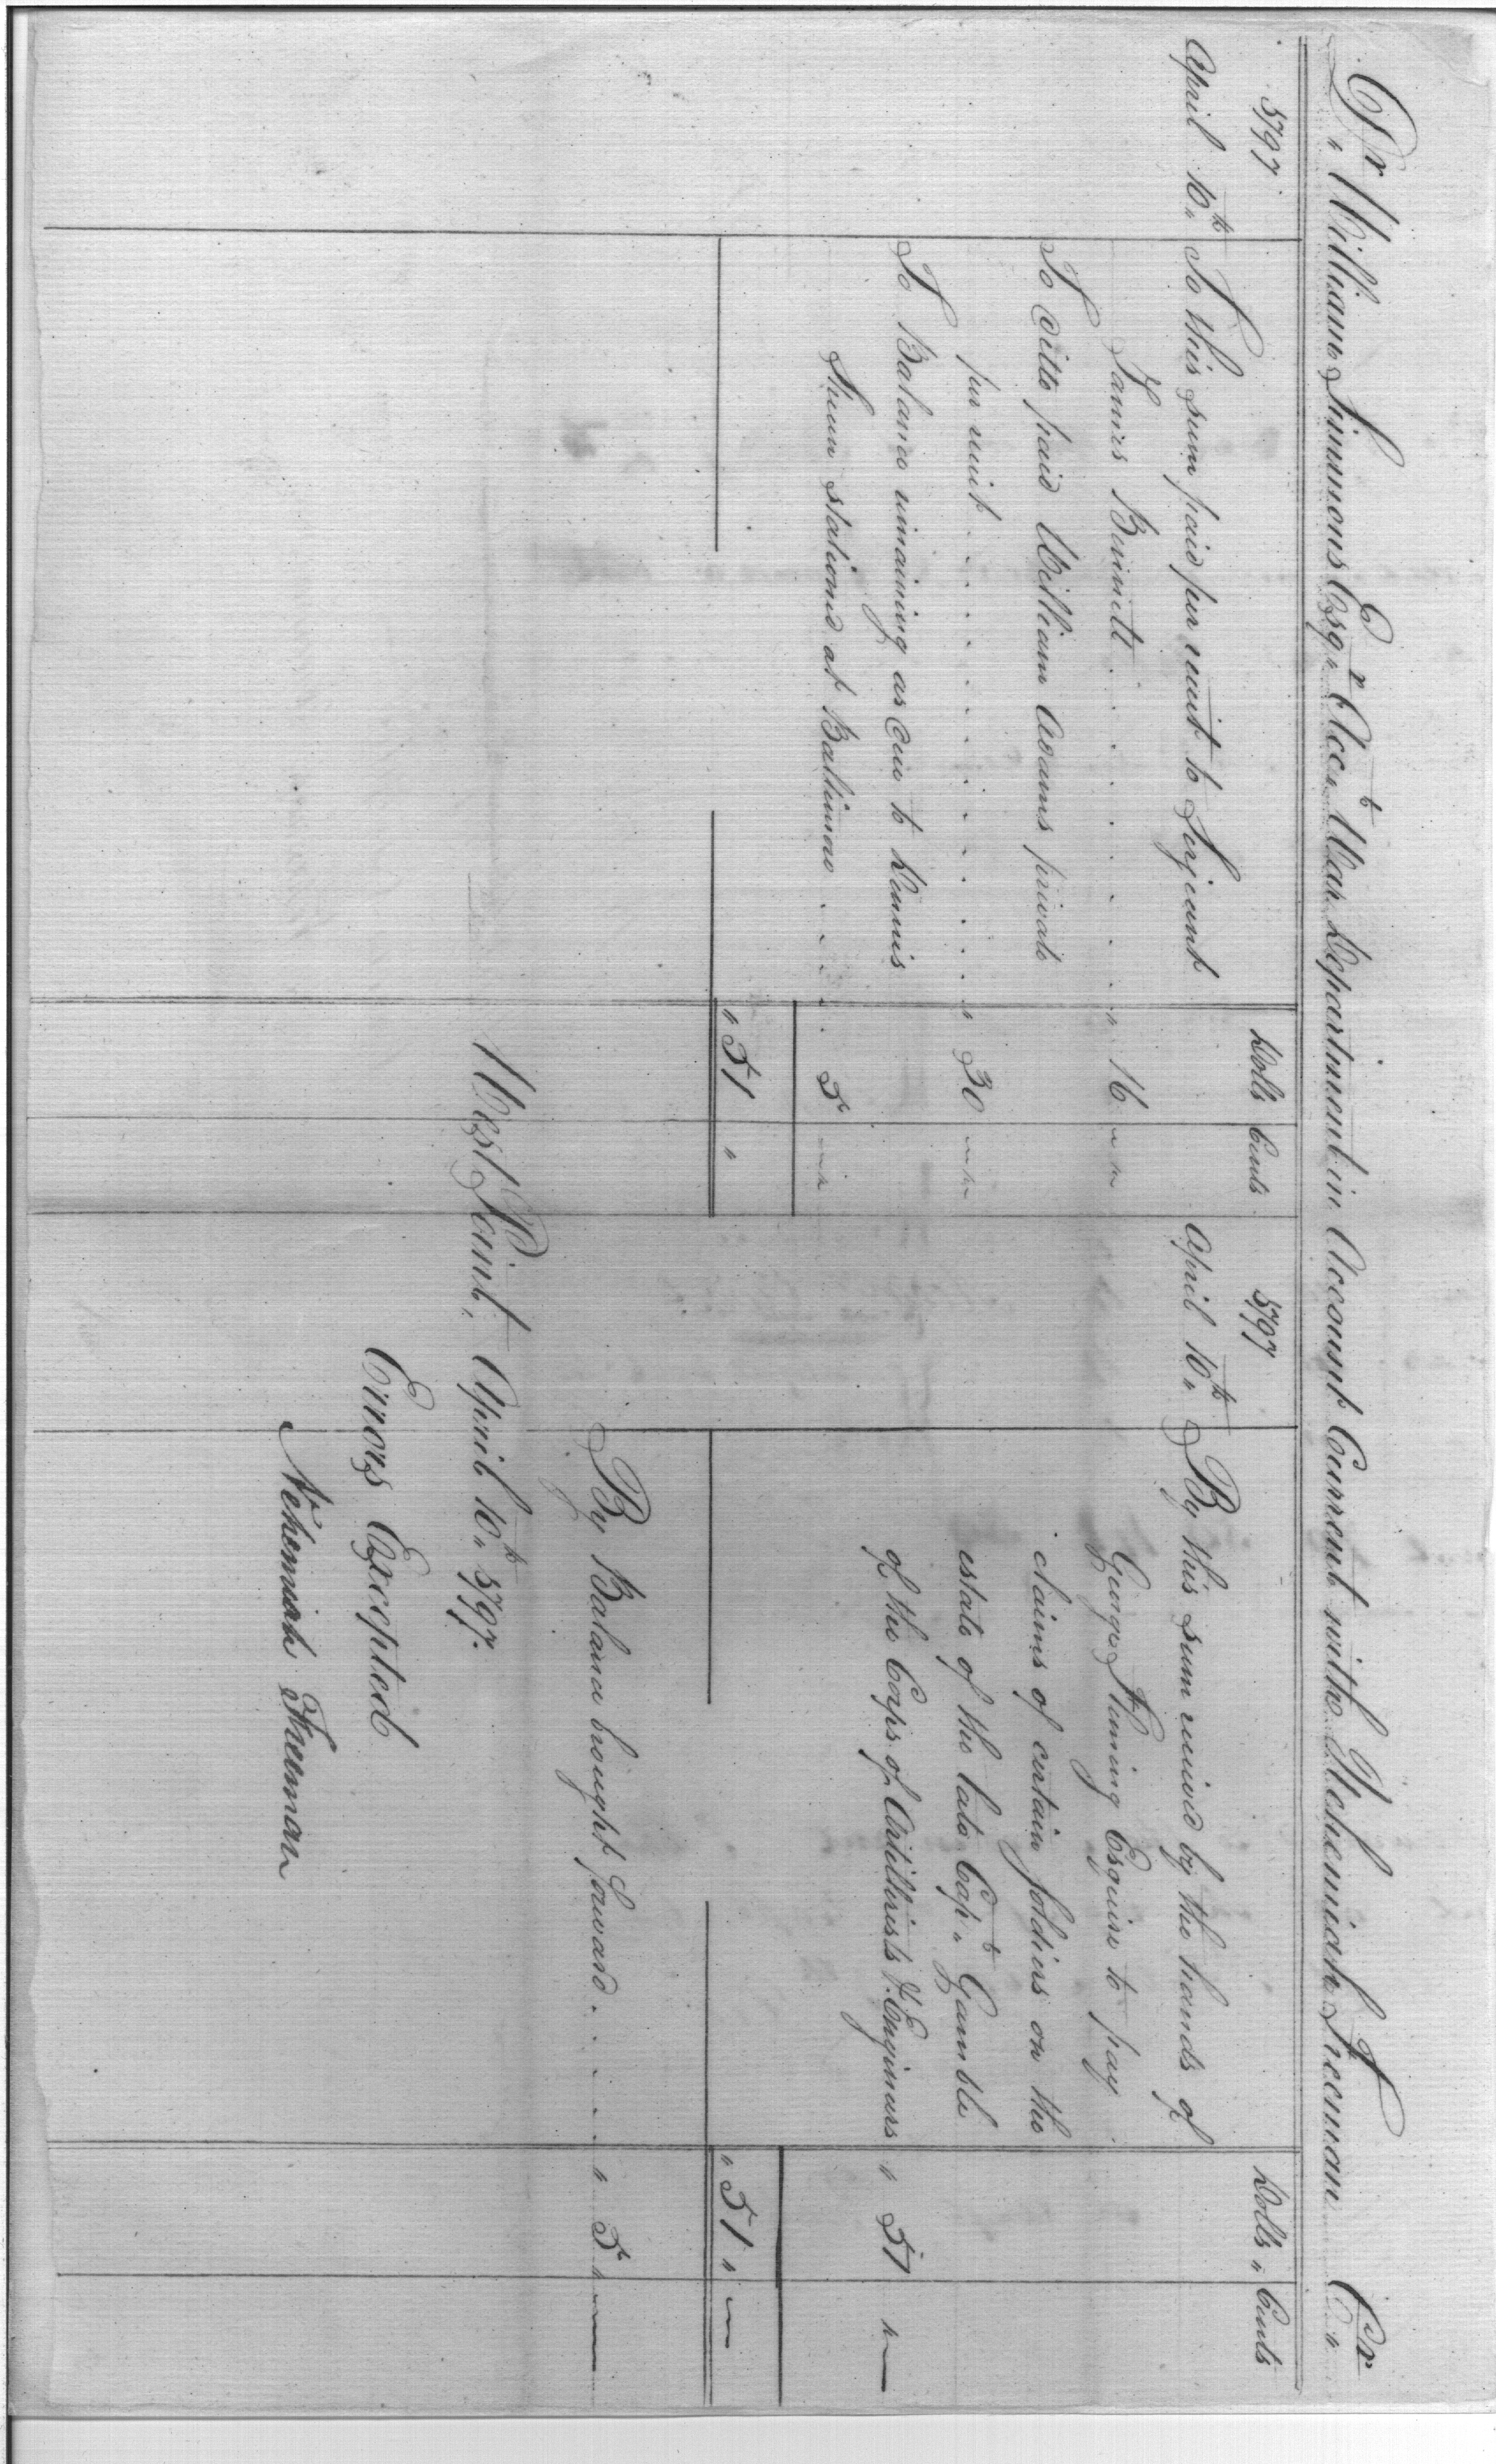 Dr William Simmons Esqr Acct War Department in Account Current with Nehemiah Freeman Cr
1797 Dolls Cents
April 10th To this sum paid per receit to Serjeant
James Bennett . . . . . . . . . " 16 " "
To ditto paid William Adams private
per receit . . . . . . . . . . . " 30 " "
To Balance remaining as due to Dennis
Shean stationed at Baltimore . . . . 5 " "
" 51 "
1797 Dolls " Cents
April 10th By this sum received by the hands of
George Fleming Esquire to pay
claims of certain soldiers on the
estate of the late Capt Gamble
of the Corps of Artillerists & Engineers " 51 " —
" 51 " —
By Balance brought forward . . . . . " 5 " —
West Point, April 10th 1797.
Errors Excepted
Nehemiah Freeman